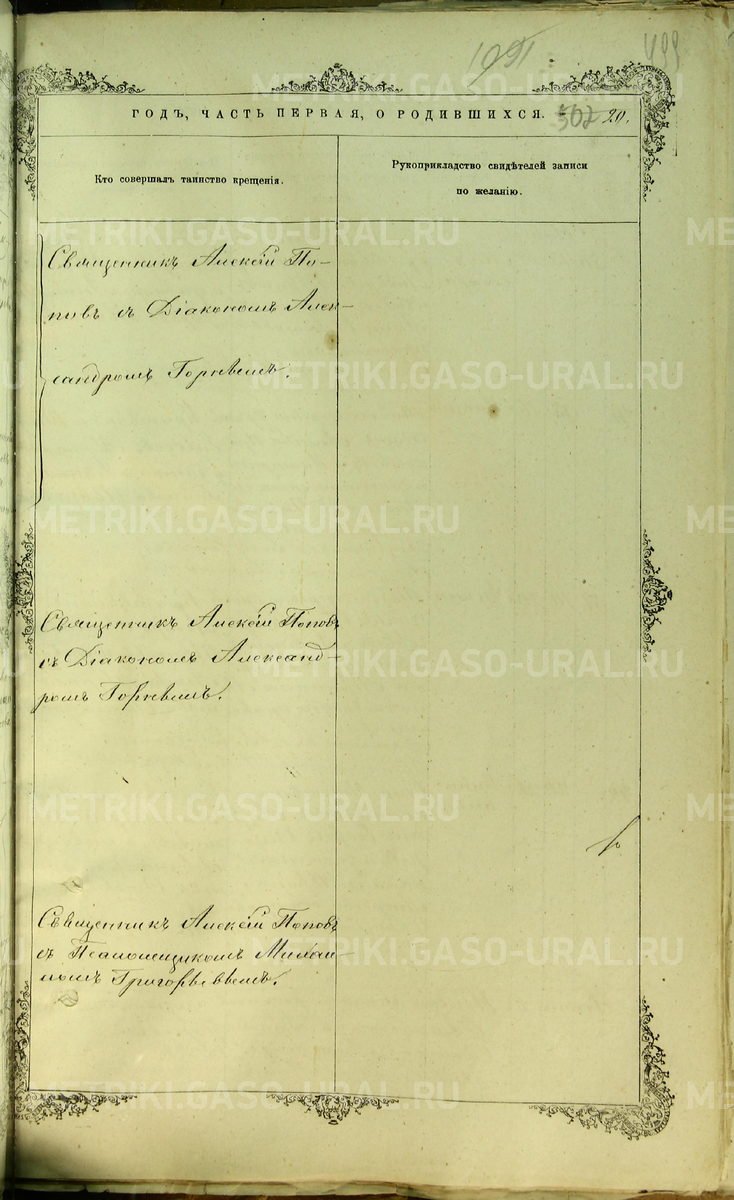 1091
499
ГОДЪ, ЧАСТЬ ПЕРВАЯ, О РОДИВШИХСЯ. 507 20.
Кто совершалъ таинство крещенія.
Рукоприкладство свидѣтелей записи
по желанію.
Священникъ Алексій По-
повъ съ Діакономъ Алек-
сандромъ Горнымъ.
Священникъ Алексій Поповъ
съ Діакономъ Александ-
ромъ Горнымъ.
Священникъ Алексій Поповъ
съ Псаломщикомъ Михаи-
ломъ Григорьевымъ.
METRIKI.GASO-URAL.RU